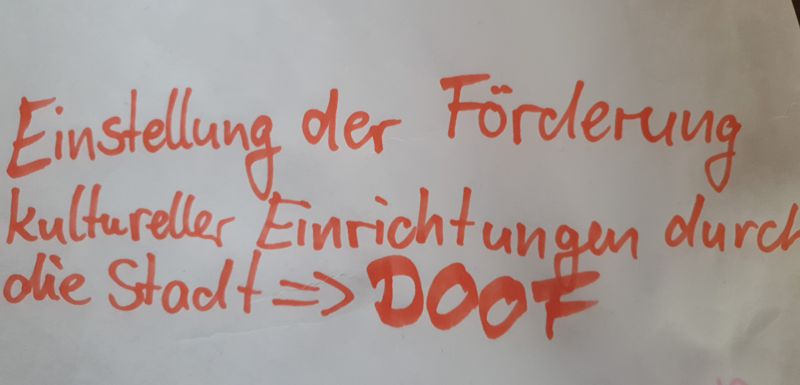 Einstellung der Förderung
kultureller Einrichtungen durch
die Stadt => DOOF